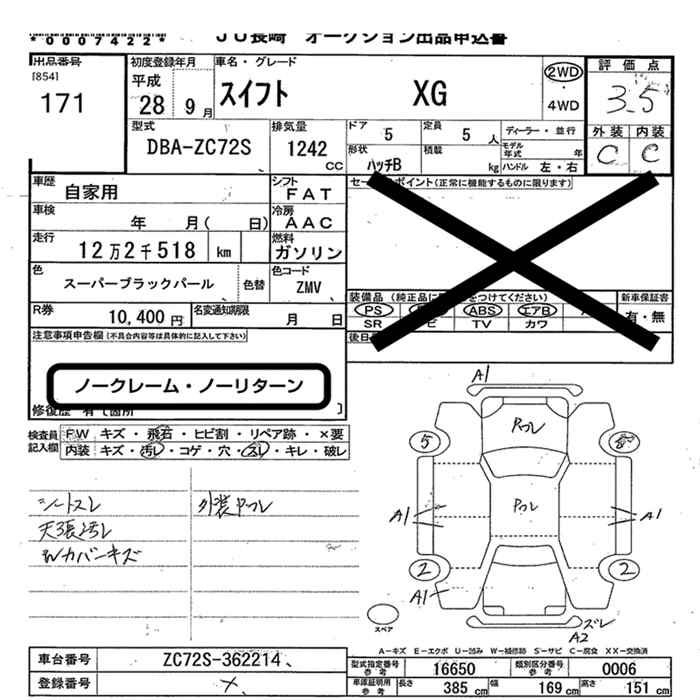 *0007422*
JU長崎 オークション出品申込書
出品番号
[854]
171
初度登録年月
平成
28 9月
車名・グレード
スイフト XG
2WD
・
4WD
評価点
3.5
外装 内装
C C
型式
DBA-ZC72S
排気量
1242
CC
ドア
5
定員
5 人
ディーラー・並行
形状
ハッチB
積載
kg
モデル年式 年
ハンドル 左・右
車歴
自家用
シフト
FAT
車検
年 月( 日)
冷房
AAC
走行
12万2千518 km
燃料
ガソリン
色
スーパーブラックパール
色替
色コード
ZMV
R券
10,400 円
名変通知期限
月 日
ポイント(正常に機能するものに限ります)
装備品
PS
ABS
エアB
SR
TV
カワ
新車保証書
有・無
注意事項申告欄(不具合内容等は具体的に記入して下さい)
ノークレーム・ノーリターン
検査員記入欄
FW キズ・飛石・ヒビ割・リペア跡・×要
内装 キズ・汚レ・コゲ・穴・スレ・キレ・破レ
シートスレ
天張汚レ
Wカバーキズ
外装
A1
5
8
A1
A1
2
2
A1
ズレ
A2
スペア
A-キズ E-エクボ U-凹み W-補修跡 S-サビ C-腐食 XX-交換済
車台番号
ZC72S-362214
登録番号
型式指定番号 参考
16650
類別区分番号 参考
0006
車庫証明用 参考
長さ 385 cm
幅 169 cm
高さ 151 cm